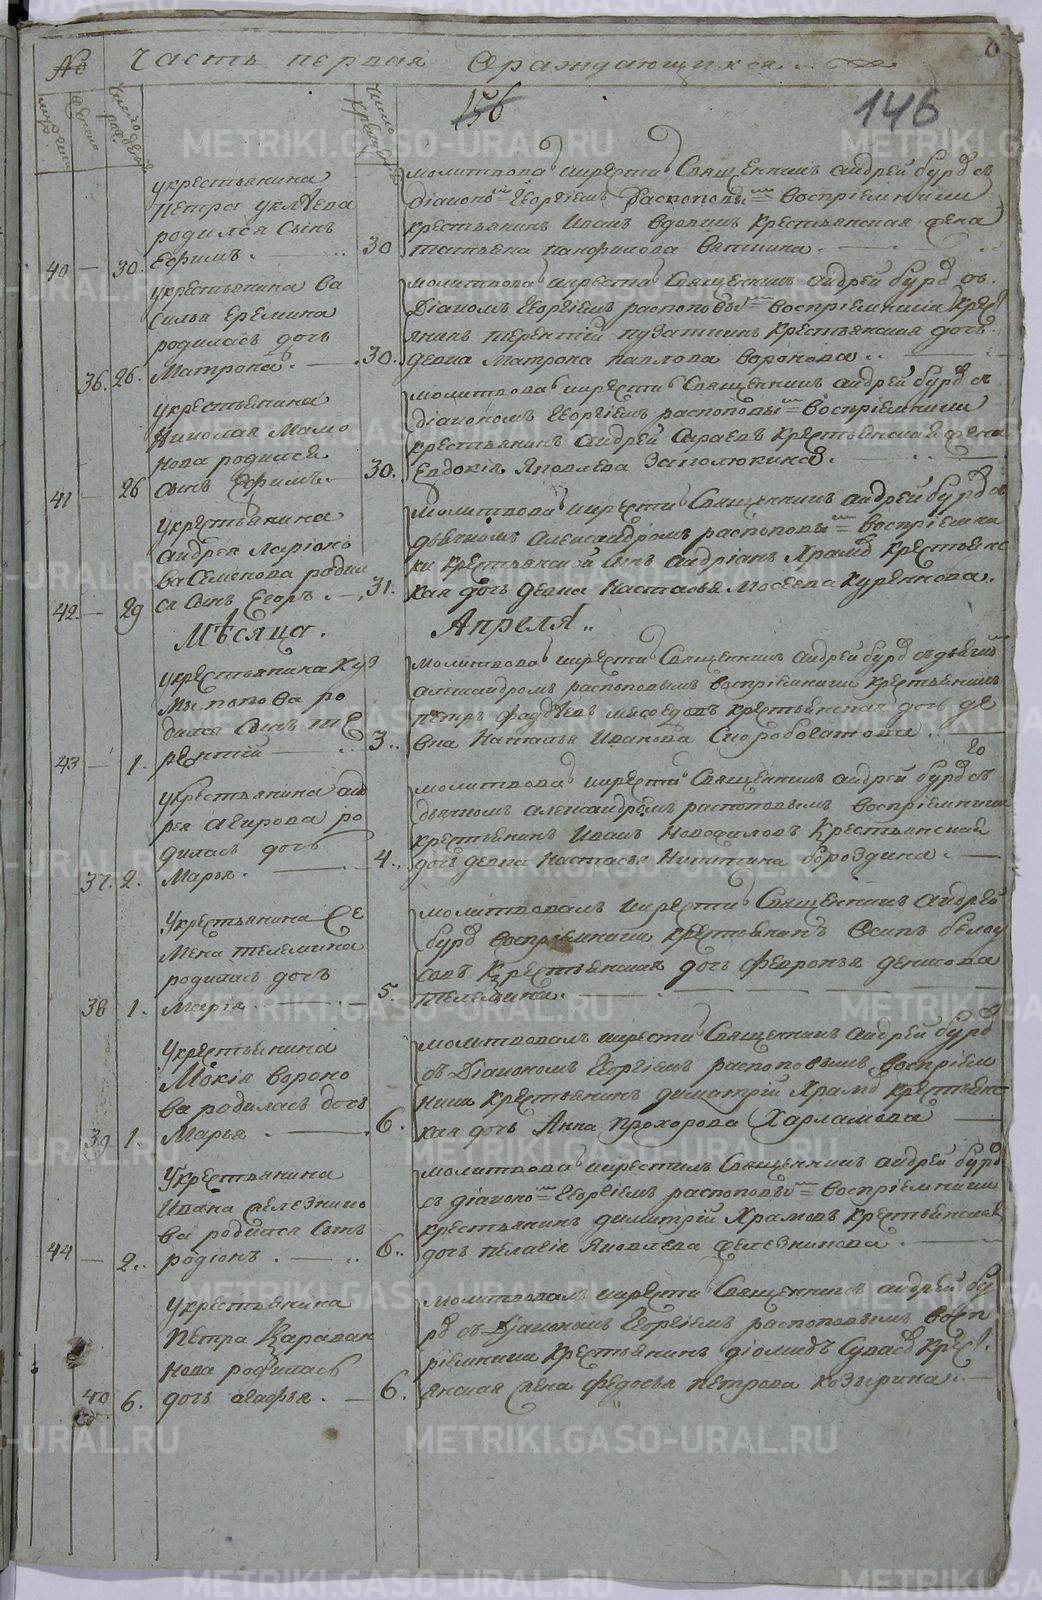 № Часть первая О раждающихся
156 146
мужеска женска число рож. число крещен.
укрестьянина
Петра
родился сынъ
40 — 30. Ефимъ. 30
молитвова икрести Священникъ андрей бурд съ
діаконо Георгіемъ Распоповы воспріемники
крестьянинъ Иванъ вдовинъ крестьянская жена
татьяна панфилова вяткина.
укрестьянина ва
силья Еремина
родилась дочь
36. 26. Матрона. 30.
молитвова икрести Священникъ андрей бурд съ
Діакономъ Георгіемъ распоповы воспріемники крес
янинъ терентій пузаткинъ крестьянская дочь
девка Матрона павлова воронова.
укрестьянина
Николая Мамо
нова родился
41 — 26 сынъ Ефимъ. 30.
молитвова икрести Священникъ андрей бурд съ
діакономъ Георгіемъ распоповы воспріемники
крестьянинъ андрей Сараевъ крестьянская жена
Евдокія Яковлева Заполюкина.
укрестьянина
андрея ларіоно
ва Семенова родил
42. — 29 ся сынъ Егоръ. 31.
молитвова икрести Священникъ андрей бурд съ
дьячкомъ александромъ распоповы воспріемни
ки крестьянской сынъ андріанъ Храмц крестьянс
кая дочь девка Настасья Мосеева Куренкова.
Мѣсяца. Апреля.
укрестьянина Куз
мы попова ро
дился сынъ те
43 — 1. рентій 3.
молитвова икрести Священникъ андрей бурд съ дьячк
александромъ распоповымъ воспріемники крестьянинъ
петръ фадѣевъ мясоедовъ крестьянская дочь де
вка Наталья Иванова Скоробогатова.
укрестьянина анд
рея агирова ро
дилась дочь
37. 2. Марья. 4.
молитвова икрести Священникъ андрей бурд съ
дьячкомъ александромъ распоповымъ воспріемники
крестьянинъ Иванъ Новодиловъ Крестьянская
дочь девка Настасья Никитина бороздина.
укрестьянина Се
мена телемина
родилась дочь
38 1. Марія 5
молитвовалъ икрести Священникъ андрей
бурд воспріемники крестьянинъ Осипъ белоу
совъ Крестьянская дочь февронья денисова
телемина.
укрестьянина
Мокія вороно
ва родилась дочь
39 1. Марья. 6.
молитвовалъ икрести Священникъ андрей бурд
съ Діакономъ Георгіемъ распоповымъ воспріем
ники крестьянинъ димитрій Храмц крестьянс
кая дочь Анна прохорова Харламова
укрестьянина
Ивана селезнио
ва родился сынъ
44 — 2. родіонъ. 6.
молитвова икрестилъ Священникъ андрей бурд
съ діаконо Георгіемъ распоповы воспріемники
крестьянинъ димитрій Храмовъ крестьянская
дочь пелагія Яковлева селезникова.
укрестьянина
Петра Караван
нова родилась
40 6. дочь агафья. 6.
молитвовалъ икрести Священникъ андрей бу
рд съ Діакономъ Георгіемъ распоповымъ восп
ріемники крестьянинъ діомидъ крес.
янская жена федосья петрова козырина.